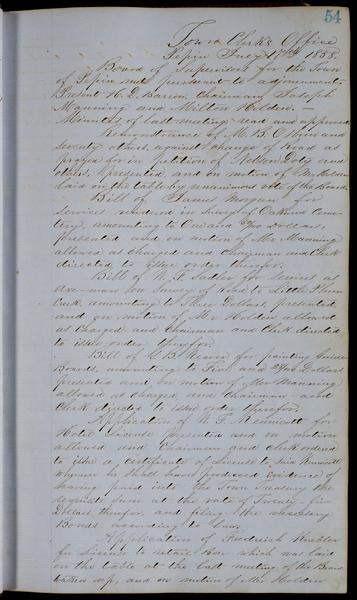 54
Town Clerk's Office
Pepin July 17th 1858.
Board of Supervisors for the Town
of Pepin met pursuant to adjournment.
Present H. D. Barron Chairman, Joseph
Manning and Milton Holden. —
Minutes of last meeting read and approved
Remonstrance of M. B. Osborn and
seventy others, against change of Road as
prayed for in petition of Nelson Doty and
others, presented, and on motion of Mr Holden
laid on the table by unanimous vote of the Board.
Bill of James Morgan for
services rendered in Survey of Oakwood Ceme-
tery, amounting to One and Dollars,
presented and on motion of Mr Manning
allowed as charged and Chairman and Clerk
directed to issue order therefor.
Bill of W. F. for services as
axe-man on Survey of Road to Little Plum
Creek, amounting to Three Dollars, presented
and on motion of Mr Holden allowed
as charged and Chairman and Clerk directed
to issue order therefor.
Bill of U. B. for painting Guide
Boards, amounting to Five and Dollars
presented and on motion of Mr Manning
allowed as charged and Chairman and
Clerk directed to issue order therefor.
Application of N. F. for
Hotel License presented and on motion
allowed and Chairman and Clerk ordered
to issue a certificate of License to said
whenever he shall have produced evidence of
having paid into the Town Treasury the
requisite sum at the rate of Twenty five
Dollars, therefor, and filing the necessary
Bonds according to Law.
Application of Fredrich
for License to retail Beer which was laid
on the table at the last meeting of the Board
taken up, and on motion of Mr Holden